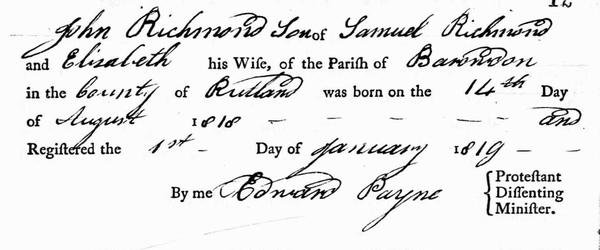 12
John Richmond Son of Samuel Richmond
and Elisabeth his Wife, of the Pariſh of Barowdon
in the County of Rutland was born on the 14th Day
of August 1818 - - - - - and
Registered the 1st - Day of January 1819 - -
By me Edward Payne { Proteſtant
Diſſenting
Miniſter.